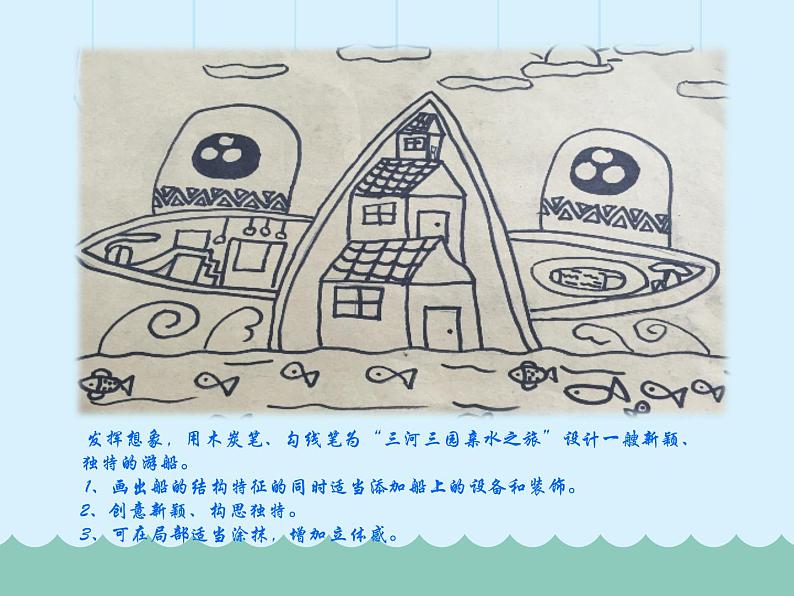 发挥想象，用木炭笔、勾线笔为“三河三园亲水之旅”设计一艘新颖、
独特的游船。
1、画出船的结构特征的同时适当添加船上的设备和装饰。
2、创意新颖、构思独特。
3、可在局部适当涂抹，增加立体感。